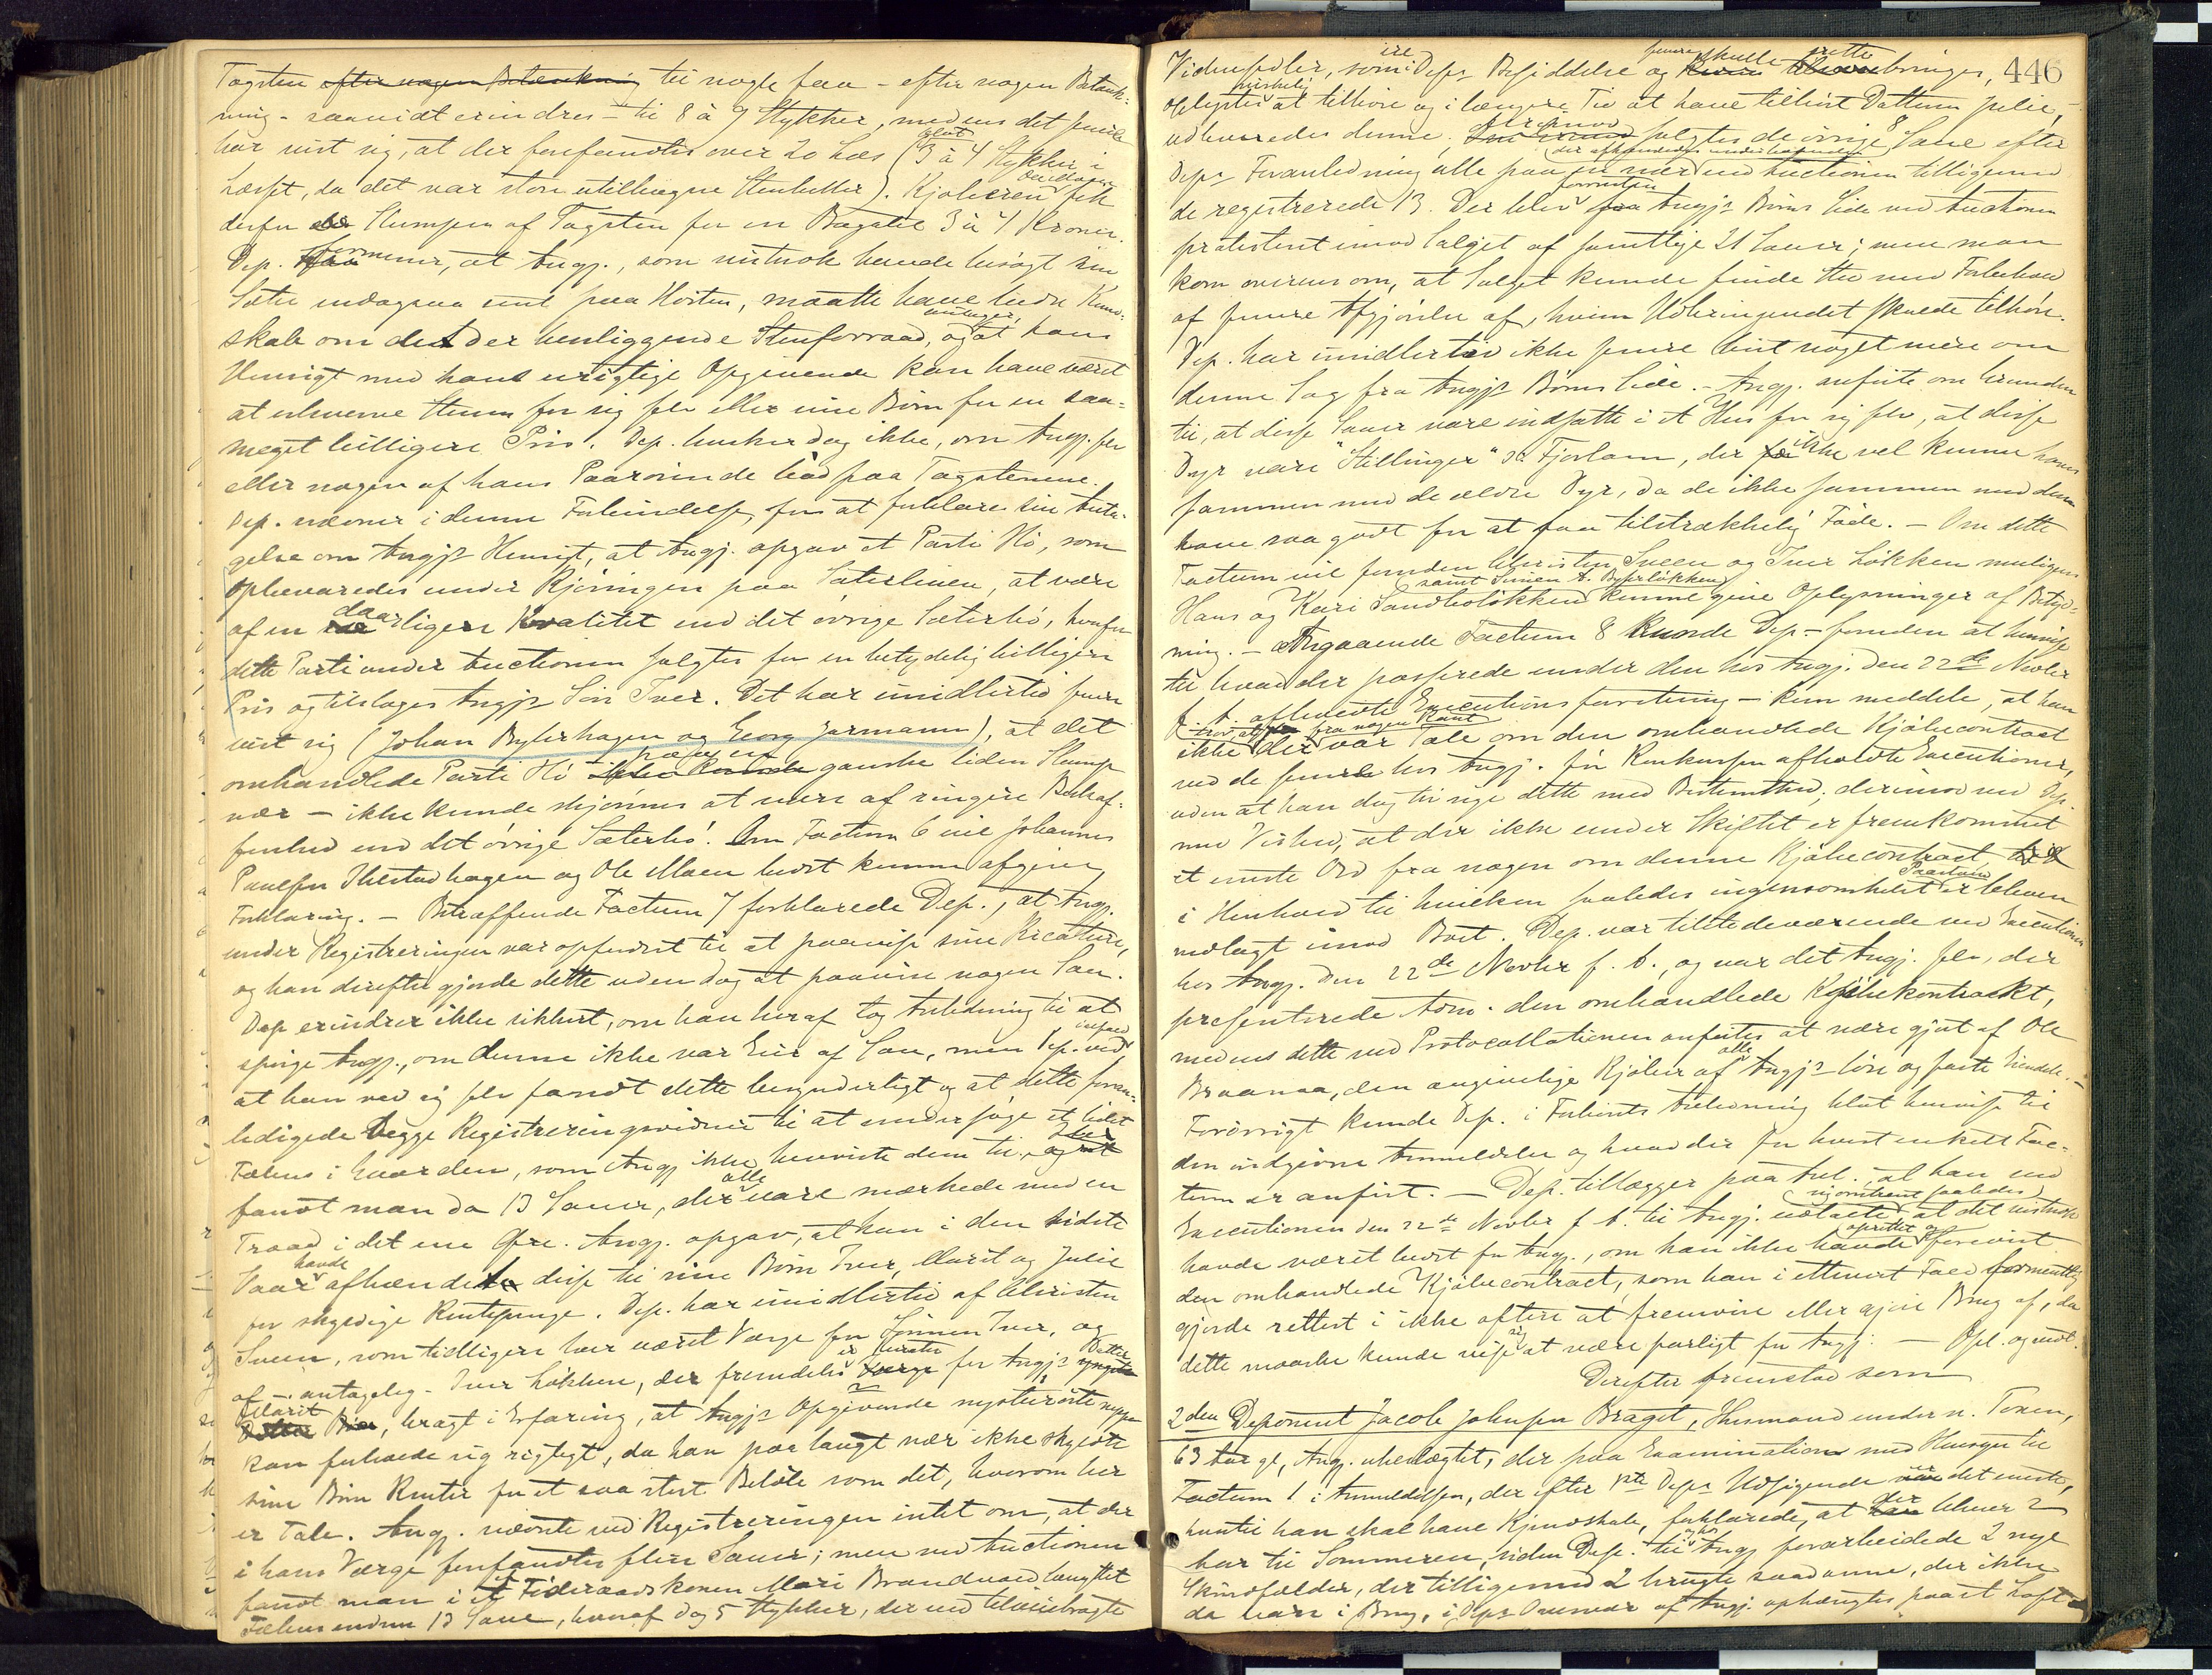 Tagsten efter nogen Betænkning til nogle faa - efter nogen Betænk-
ning - saavidt erindres - til 8 à 9 Stykker, medens det senere
har vist sig, at der forefandtes over 20 Læs (blot 3 à 4 Stykker i
Læsset, da det var store utilhugne Stenheller). Kjøberen fik
derfor Slumpen af Tagsten for en Bagatel 3 à 4 Kroner.
Dep. formener, at Angj., som vistnok havde besøgt sin
Sæter endogsaa sent paa Høsten, maatte have bedre Kund-
skab om det der henliggende Stenforraad, og antager, at hans
Hensigt med hans urigtige Opgivende kan have været
at erhverve Stenen for sig selv eller sine Børn for en saa-
meget billigere Pris. Dep. husker dog ikke, om Angj. selv
eller nogen af hans Paarørende bød paa Tagstenene.
Dep. nævner i denne Forbindelse, for at forklare sin Anta-
gelse om Angjs Hensigt, at Angj. opgav et Parti Hø, som
opbevaredes under Kjøringen paa Sæterleiven, at være
af en daarligere Kvalitet end det øvrige Sæterhø, hvorfor
dette Parti under Auctionen solgtes for en betydelig billigere
Pris og tilsloges Angjs Søn Iver. Det har imidlertid senere
vist sig (Johan Bylerhagen og Georg Jormann), at det
omhandlede Parti Hø ganske liden Slump
nær - ikke kunde skjønnes at være af ringere Beskaf-
fenhed end det øvrige Sæterhø. Om Factum 6 vil Johannes
Paulsen Ihlestadhagen og Ole Moen bedst kunne afgive
Forklaring. - Betræffende Factum 7 forklarede Dep., at Angj.
under Registreringen var opfordret til at paavise sine Kreature,
og han derefter gjorde dette uden dog at paavise nogen Sau.
Dep erindrer ikke sikkert, om han heraf tog Anledning til at
spørge Angj., om denne ikke var Eier af Sau, men Dep. ved
at han ved sig selv fandt dette besynderligt og at dette foran-
ledigede begge Registreringsvidner til at undersøge et lidet
Fæhus i Gaarden, som Angj ikke henviste dem til, og her
fandt man da 13 Sauer, der alle vare mærkede med en
Traad i det ene Øre. Angj. opgav, at han i den sidste
Vaar havde afhændet disse til sine Børn Iver, Marit og Julie
for skyldige Rentepenge. Dep. har imidlertid af Christen
Sveen, som tidligere har været Værge for Sønnen Iver, og
af - antagelig - Iver Løkken, der fremdeles er Værge for Angjs Datter
Marit, bragt i Erfaring, at Angjs Opgivende nysnævnte neppe
kan forholde sig rigtigt, da han paa langt nær ikke skyldte
sine Børn Renter for et saa stort Beløb som det, hvorom her
er Tale. Angj. nævnte ved Registreringen intet om, at der
i hans Værge forefandtes flere Sauer; men ved Auctionen
fandt man i et Føderaadskonen Mari Brandvold benyttet
Fæhus endnu 13 Saue, hvoraf dog 5 Stykker, der ved tilveiebragte
446
Vidnesedler, som ere i Deps Besiddelse og senere skulle tilveiebringes,
oplystes virkelig at tilhøre og i længere Tid at have tilhørt Datteren Julie,
udleveredes denne. Derimod solgtes de øvrige 8 Saue efter
Deps Foranledning alle paa en nær ved Auctionen tilligemed
de registrerede 13. Der blev forresten fra Angjs Børns Side ved Auctionen
protesteret imod Salget af samtlige 21 Sauer; men man
kom overens om, at Salget kunde finde Sted med Forbehold
af senere Afgjørelse af, hvem Udbringendet skulde tilhøre.
Dep. har imidlertid ikke senere hørt noget mere om
denne Sag fra Angjs Børns Side. - Angj. anførte om Grunden
til, at disse Sauer vare indsatte i et Hus for sig selv, at disse
Dyr vare "Stillinger" ɔ: Fjorlam, der ikke vel kunne haves
sammen med de ældre Dyr, da de ikke sammen med dem
have saa godt for at faa tilstrækkelig Føde. - Om dette
Factum vil foruden Christen Sveen og Iver Løkken muligens
Hans og Kari Sandboløkken samt Simen A. Byherløkken kunne give Oplysninger af Betyd-
ning. - Angaaende Factum 8 kunde Dep - foruden at henvise
til hvad der passerede under den hos Angj. den 22de Novbr
f. A. afholdte Executionsforretning - kun meddele, at han
ikke tror, at der fra nogen Kant var Tale om den omhandlede Kjøbecontract
ved de senere hos Angj. før Konkursen afholdte Executioner,
uden at han dog tør sige dette med Bestemthed; derimod ved Dep.
med Vished, at der ikke under Skiftet er fremkommet
et eneste Ord fra nogen om denne Kjøbecontract,
i Henhold til hvilken saaledes ingensomhelst Paastand er bleven
nedlagt imod Boet. Dep. var tilstedeværende ved Executionen
hos Angj. den 22de Novbr f. A., og var det Angj. selv, der
presenterede Adv. den omhandlede Kjøbekontrackt,
medens dette ved Protocollationen anførtes at være gjort af Ole
Braanaa, den angivelige Kjøber af alle Angjs løse og faste Eiendele. -
Forøvrigt kunde Dep. i Forhørets Anledning blot henvise til
den indgivne Anmeldelse og hvad der for hvert enkelt Fac-
tum er anført. - Dep. tillægger paa Anl., at han ved
Executionen den 22de Novbr f A. til Angj. udtalte at det vistnok
havde været bedst for Angj., om han ikke havde oprettet og forevist
den omhandlede Kjøbecontract, som han i ethvert Fald formentlig
gjorde rettest i ikke oftere at fremvise eller gjøre Brug af, da
dette maaske kunde vise sig at være farligt for Angj. - Opl. og vedt.
Derefter fremstod som
2den Deponent Jacob Johnsen Braget, Husmand under n. Tonen,
63 Aar gl., Angj. ubeslægtet, der paa Examination med Hensyn til
Factum 1 i Anmeldelsen, der efter 1ste Deps Udsigende er det eneste,
hvortil han skal have Kjendskab, forklarede, at der bliver 2
Aar til Sommeren, siden Dep. til og hos Angj forarbeidede 2 nye
Skindfælder, der tilligemed 2 brugte saadanne, der ikke
da vare i Brug, i Deps Overvær af Angj. ophængtes paa et Loft